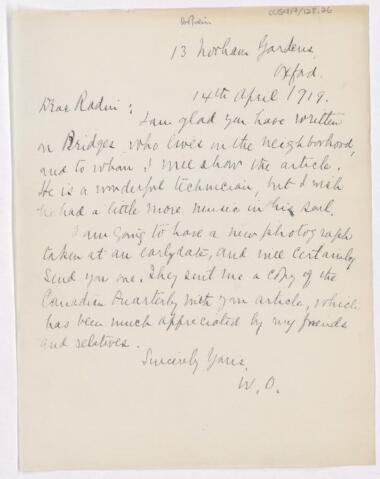 CUS417/128.26
13 Norham Gardens,
Oxford.
14th April 1919.
Dear Radin:
I am glad you have written
on Bridges who lives in the neighborhood,
and to whom I will show the article.
He is a wonderful technician, but I wish
he had a little more music in his soul.
I am going to have a new photograph
taken at an early date, and will certainly
send you one. They sent me a copy of the
Canadian Quarterly with your article, which
has been much appreciated by my friends
and relatives.
Sincerely Yours,
W. O.